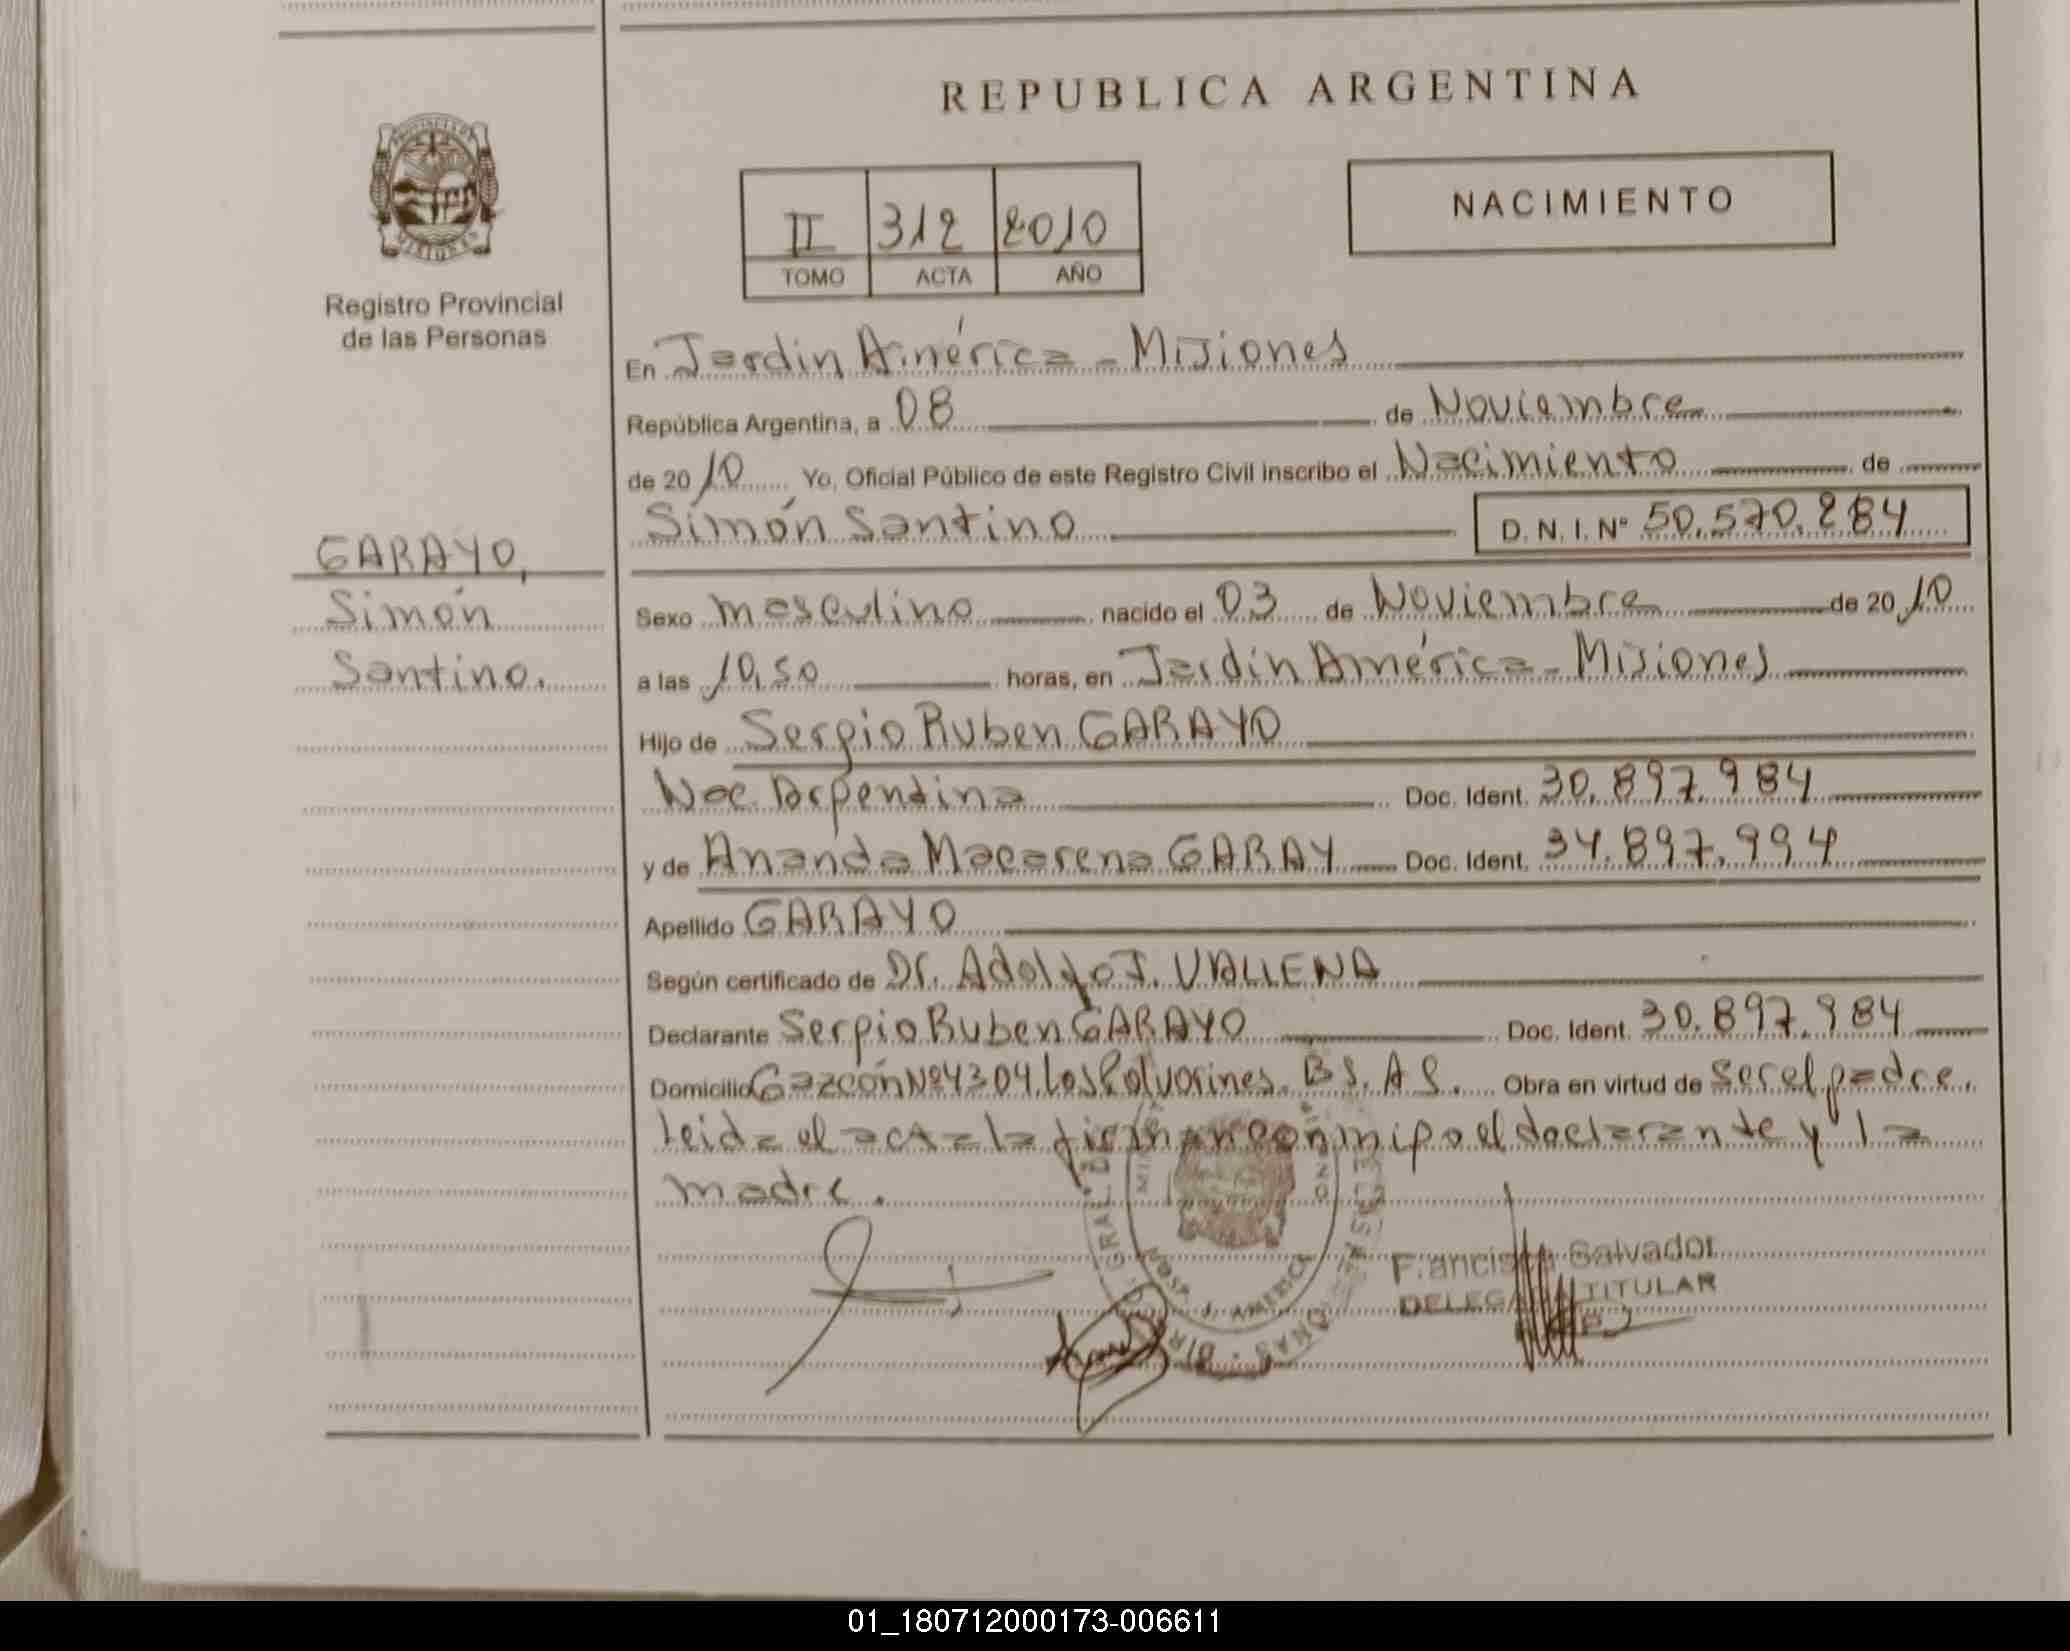 REPUBLICA ARGENTINA
PROVINCIA DE
MISIONES
Registro Provincial
de las Personas
II 312 2010
TOMO ACTA AÑO
NACIMIENTO
En Jardín América - Misiones
República Argentina, a 08 de Noviembre
de 2010 Yo, Oficial Público de este Registro Civil inscribo el Nacimiento de
Simón Santino D. N. I. Nº 50.570.284
GARAYO,
Simón
Santino.
Sexo masculino nacido el 03 de Noviembre de 2010
a las 10,50 horas, en Jardín América - Misiones
Hijo de Sergio Ruben GARAYO
Nac. Argentina Doc. Ident. 30.897.984
y de Ananda Macarena GARAY Doc. Ident. 34.897.994
Apellido GARAYO
Según certificado de Dr. Adolfo J. VALLENA
Declarante Sergio Ruben GARAYO Doc. Ident. 30.897.984
Domicilio Gazcón Nº 4304 Los Polvorines. BS. AS. Obra en virtud de ser el padre.
Leida el acta la firman conmigo el declarante y la
madre.
Salvador
TITULAR
01_180712000173-006611